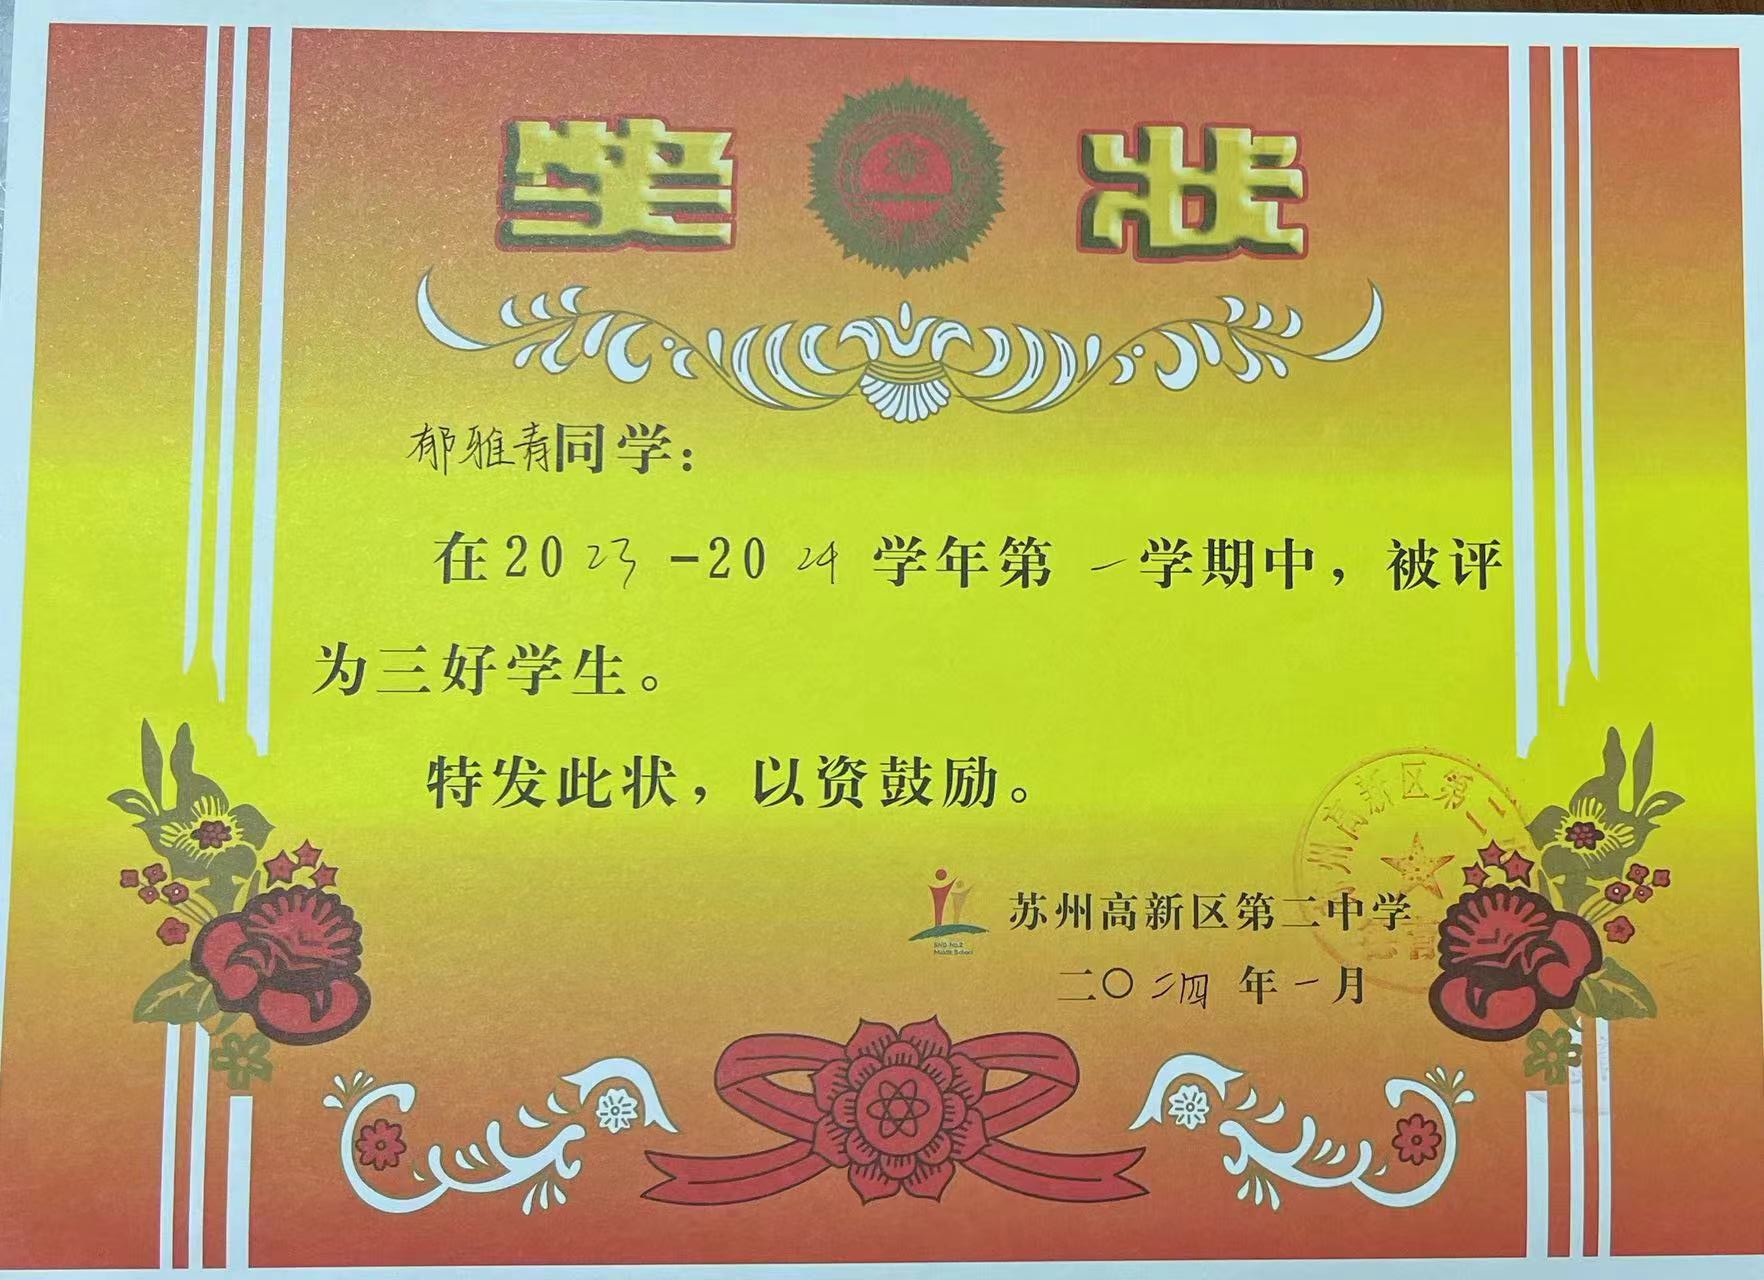 奖状
郁雅青同学：
在2023-2024学年第一学期中，被评
为三好学生。
特发此状，以资鼓励。
苏州高新区第二中学
SND No.2
Middle School
二〇二四年一月
州高新区第二